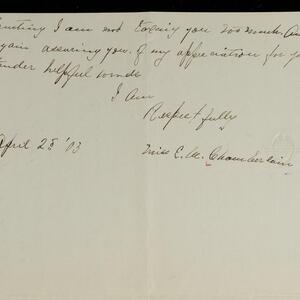 Trusting I am not taxing you too much. And
again assuring you of my appreciation for your
tender helpful words
I Am
Respectfully
Miss C. M. Chamberlain
April 25 '03